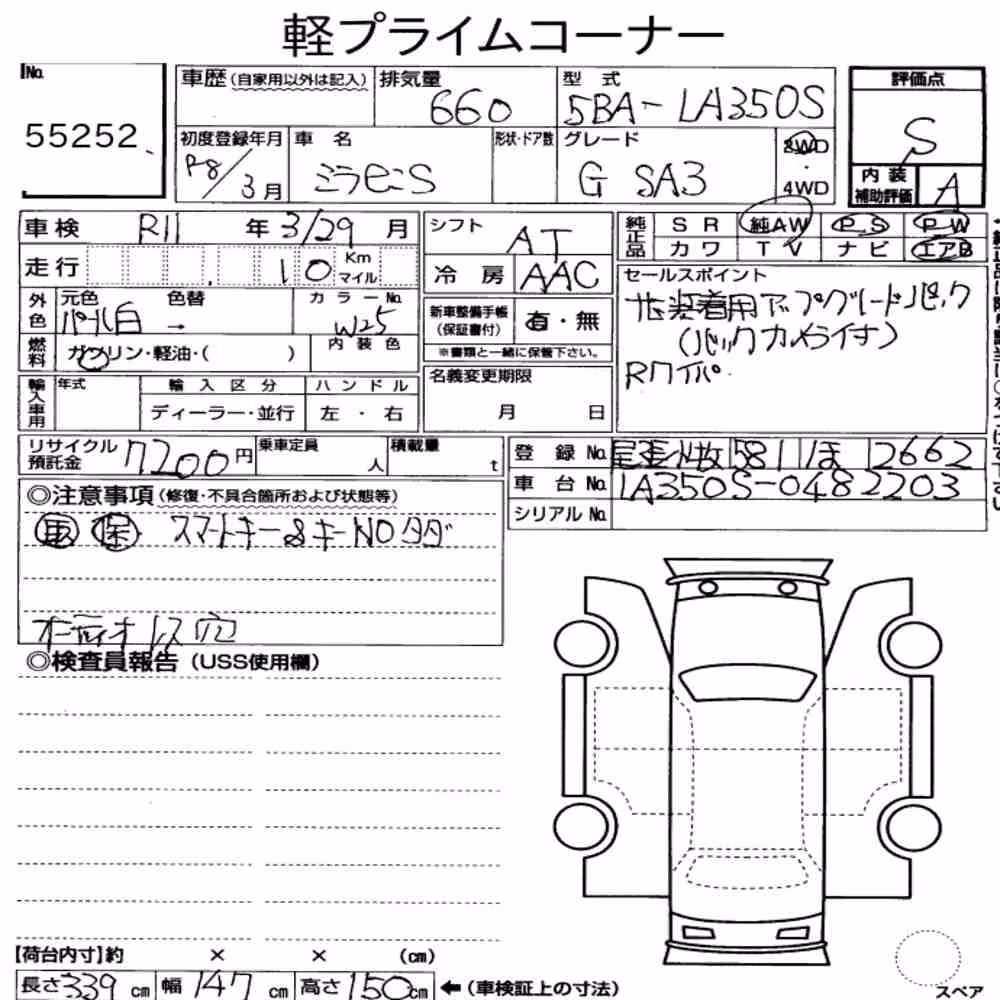 軽プライムコーナー
No. 55252
車歴(自家用以外は記入) 排気量 660 型式 5BA-LA350S
評価点 S
初度登録年月 R8/3月 車名 ミラe:S 形状・ドア数 グレード G SA3 2WD ・ 4WD
内装補助評価 A
車検 R11年3/29月
シフト AT
純正品 SR 純AW PS PW
カワ TV ナビ エアB
走行 10 Km マイル
冷房 AAC
セールスポイント
外色 元色 パール白 色替 → カラーNo. W25
新車整備手帳(保証書付) 有・無
※書類と一緒に保管下さい。
装着用アップグレードパック
(バックカメライ付)
Rワイパー
燃料 ガソリン・軽油・( ) 内装色
輸入車用 年式 輸入区分 ハンドル
ディーラー・並行 左・右
名義変更期限 月 日
リサイクル預託金 7200円 乗車定員 人 積載量 t
登録No. 尾張小牧 581 ほ 2662
車台No. LA350S-0482203
シリアルNo.
◎注意事項(修復・不具合箇所および状態等)
取 保 スマートキー&キーNOタグ
オーディオレス穴
◎検査員報告(USS使用欄)
【荷台内寸】約 × × (cm)
長さ339cm 幅147cm 高さ150cm ←(車検証上の寸法)
スペア